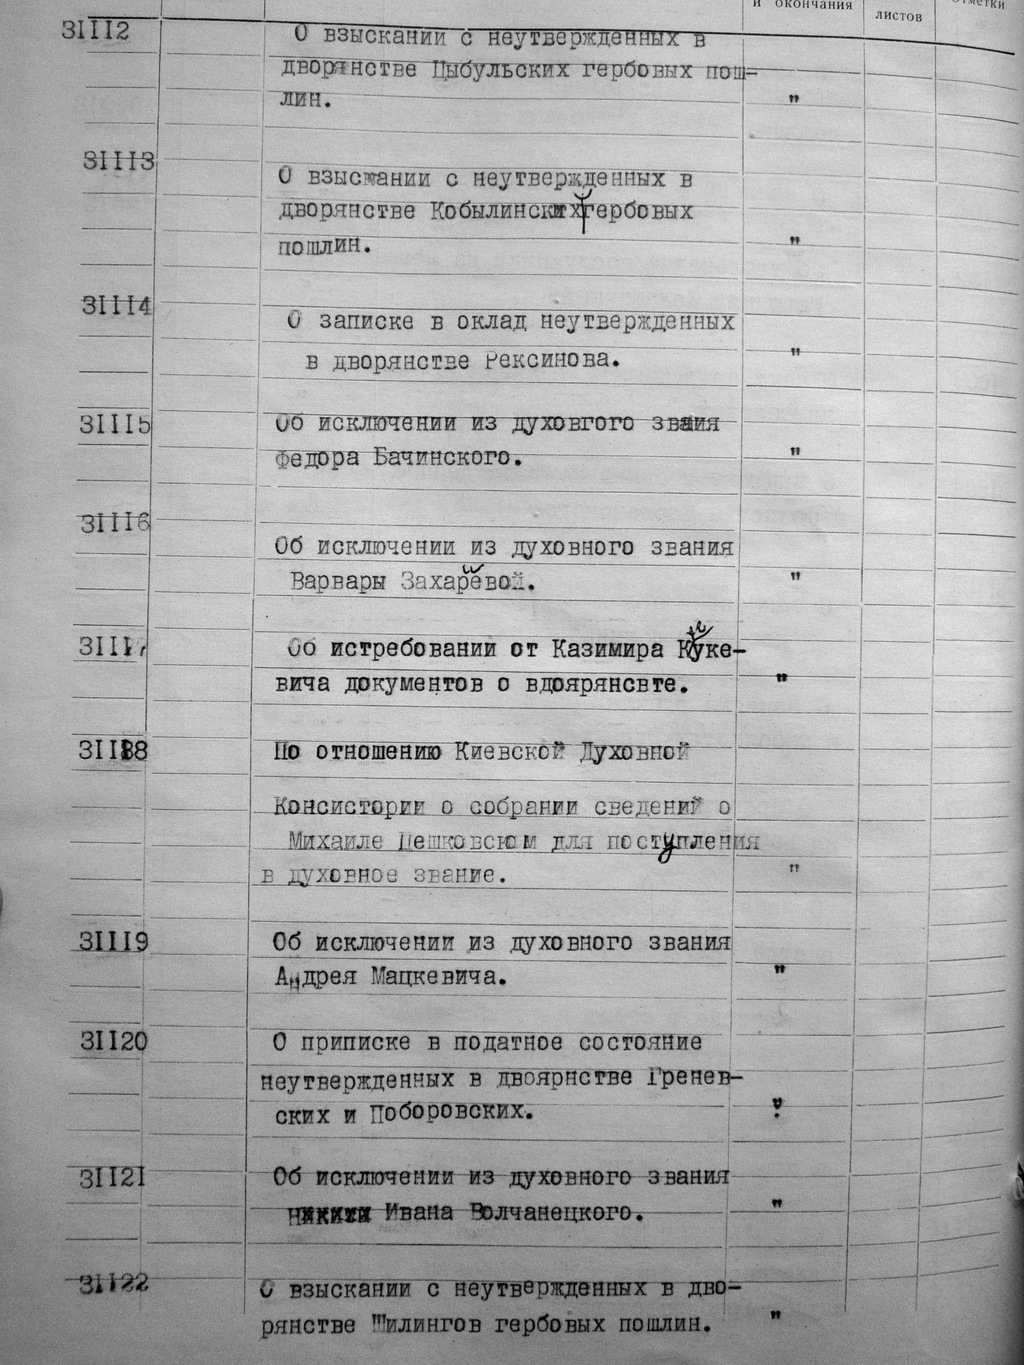 и окончания
листов
Отметки
31112
О взыскании с неутвержденных в
дворянстве Цыбульских гербовых пош-
лин. "
31113
О взыскании с неутвержденных в
дворянстве Кобылинских гербовых
пошлин. "
31114
О записке в оклад неутвержденных
в дворянстве Рексинова. "
31115 Об исключении из духовгого звания
Федора Бачинского. "
31116
Об исключении из духовного звания
Варвары Захаревой. "
31117 Об истребовании от Казимира Куке-
вича документов о вдоярянсвте. "
31118 По отношению Киевской Духовной
Консистории о собрании сведений о
Михаиле Цешковском для поступления
в духовное звание. "
31119 Об исключении из духовного звания
Андрея Мацкевича. "
31120 О приписке в податное состояние
неутвержденных в двоярнстве Гренев-
ских и Поборовских.
31121 Об исключении из духовного звания
Ивана Волчанецкого. "
31122 О взыскании с неутвержденных в дво-
рянстве Шилингов гербовых пошлин. "